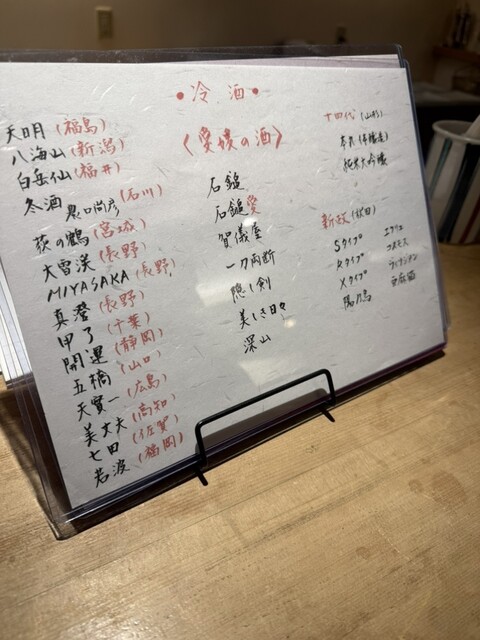 •冷酒•
天明 (福島)
八海山 (新潟)
白岳仙 (福井)
冬酒 農口尚彦 (石川)
萩の鶴 (宮城)
大雪渓 (長野)
MIYASAKA (長野)
真澄 (長野)
甲子 (千葉)
開運 (静岡)
五橋 (山口)
天寶一 (広島)
美丈夫 (高知)
七田 (佐賀)
若波 (福岡)
〈愛媛の酒〉
石鎚
石鎚 愛
賀儀屋
一刀両断
隠し剣
美しき日々
深山
十四代 (山形)
本丸
純米大吟醸
新政 (秋田)
Sタイプ
Rタイプ
Xタイプ
陽乃鳥
エクリュ
コスモス
亜麻猫